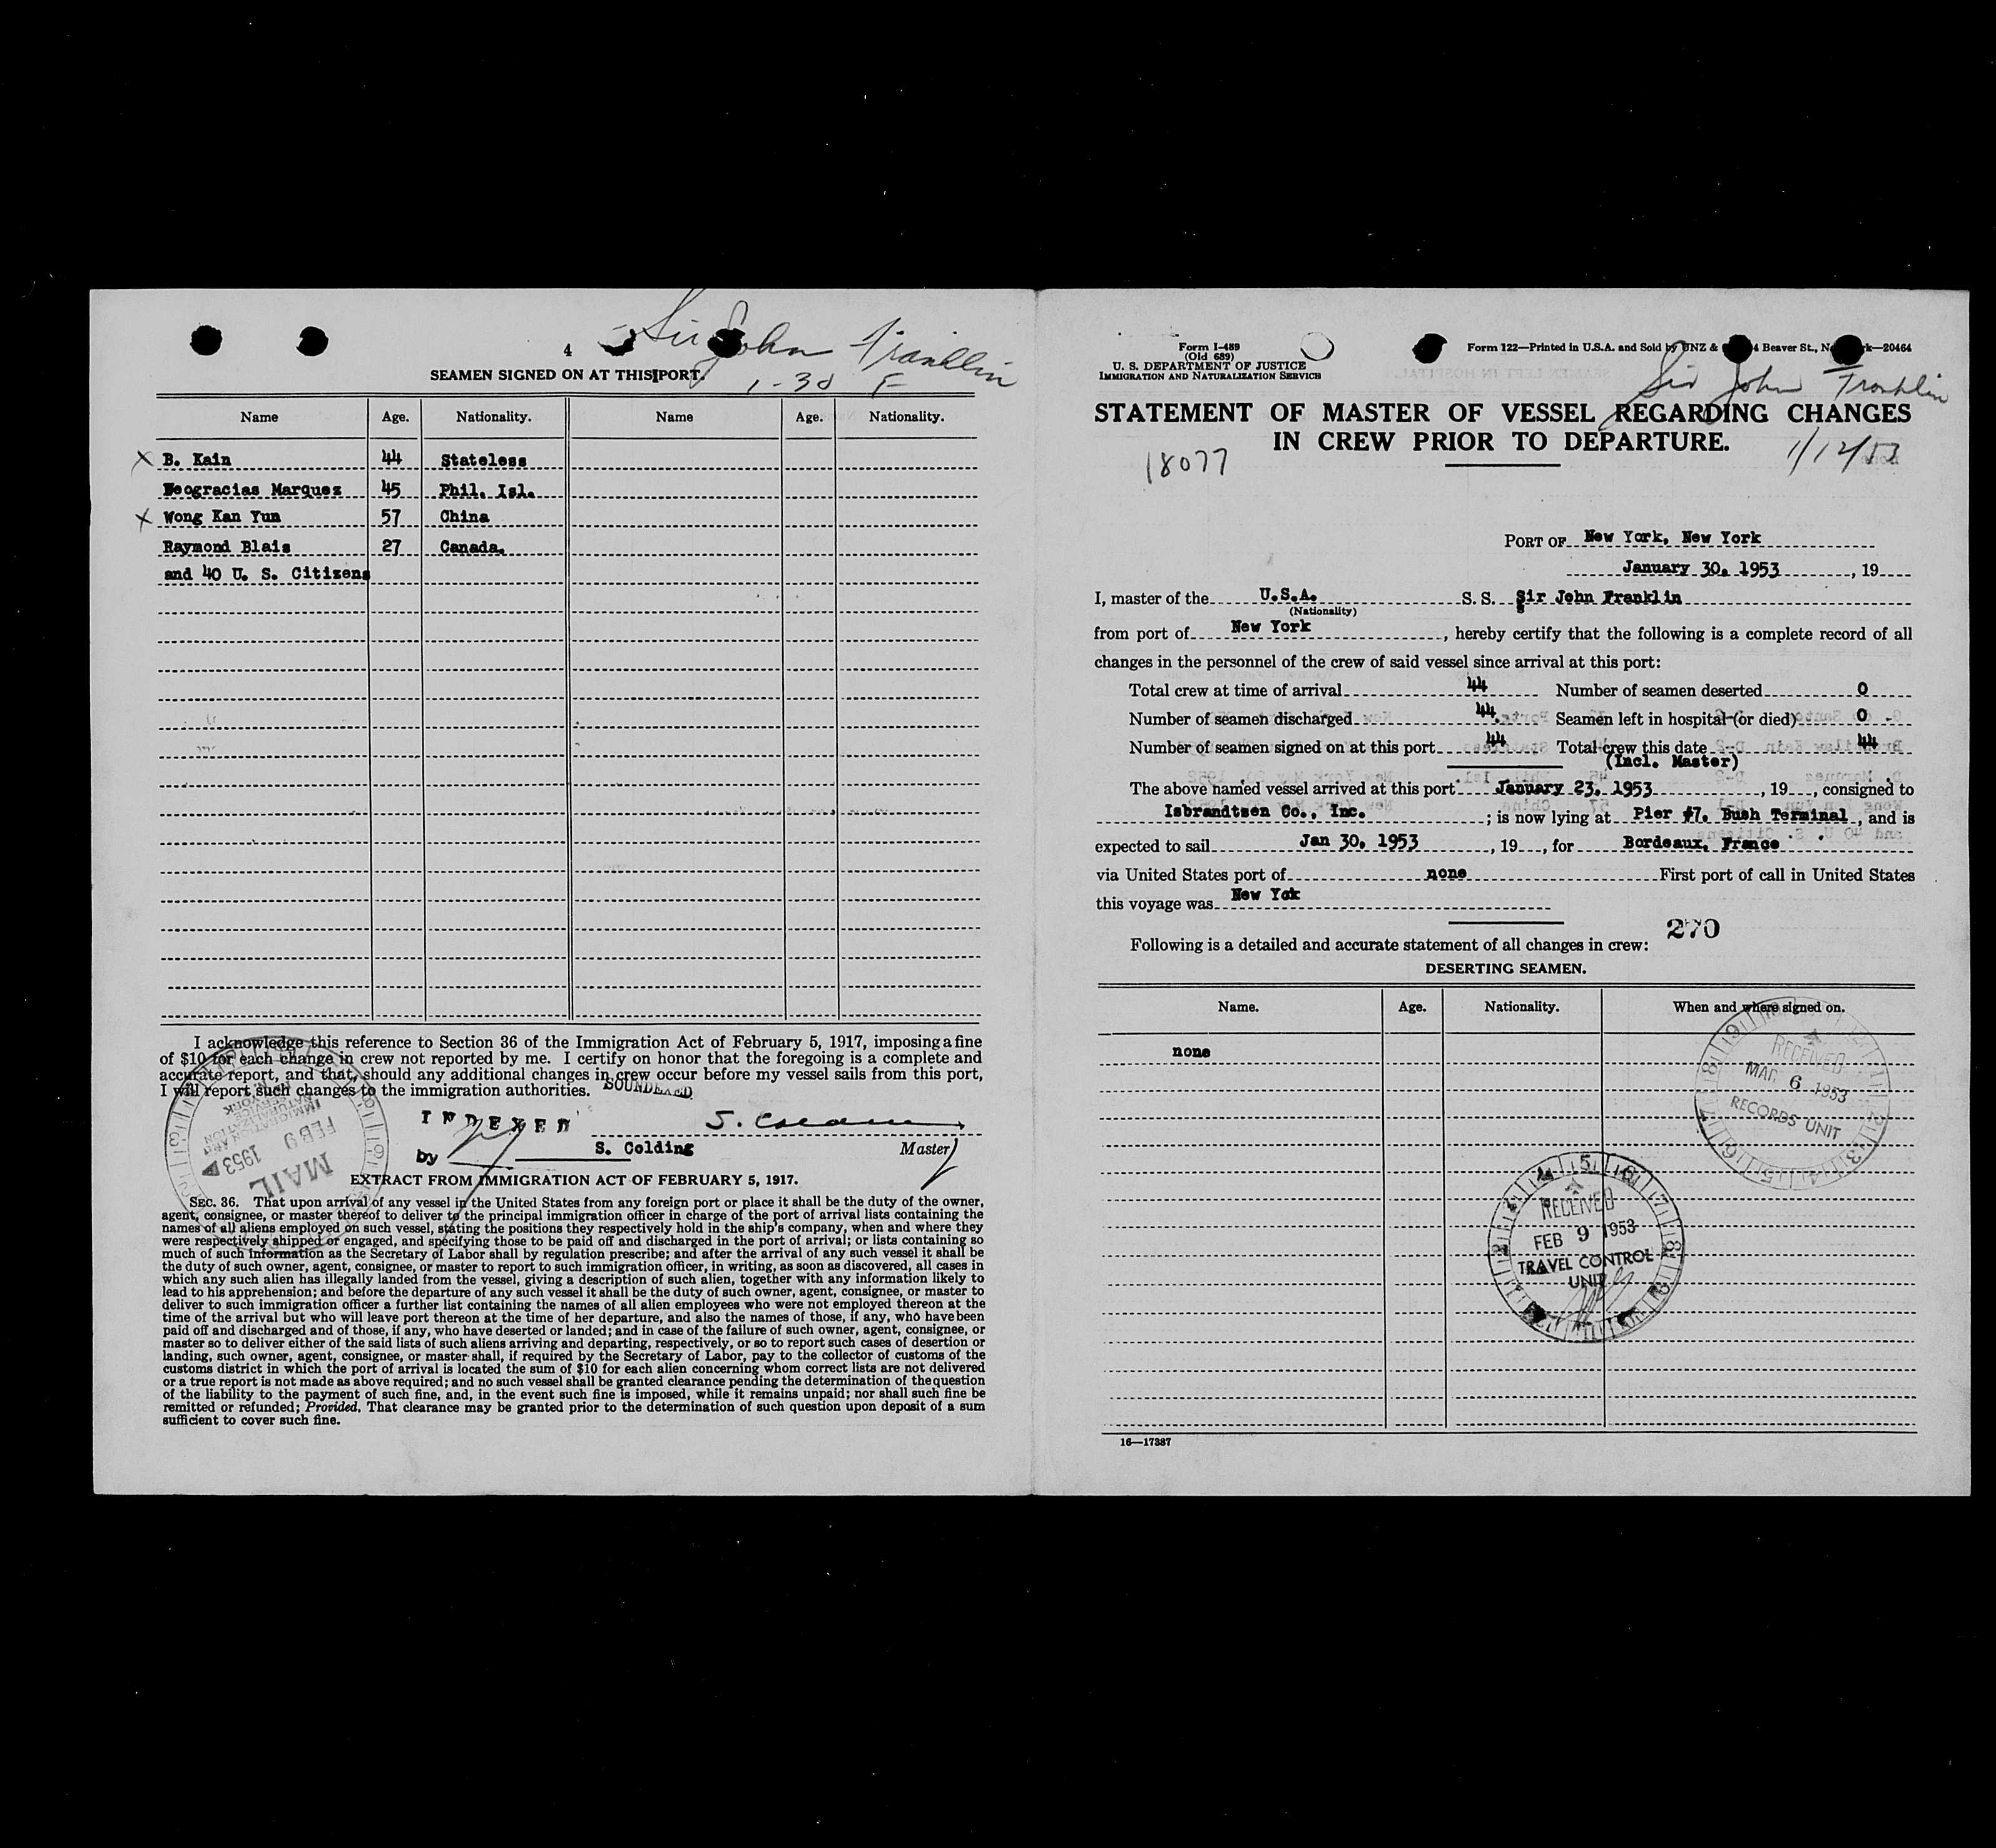 4
Sir John Franklin
SEAMEN SIGNED ON AT THIS PORT.
1-30 F
Name Age. Nationality. Name Age. Nationality.
X B. Kain 44 Stateless
Deogracias Marquez 45 Phil. Isl.
X Wong Kan Yun 57 China
Raymond Blais 27 Canada.
and 40 U. S. Citizens
I acknowledge this reference to Section 36 of the Immigration Act of February 5, 1917, imposing a fine
of $10 for each change in crew not reported by me. I certify on honor that the foregoing is a complete and
accurate report, and that, should any additional changes in crew occur before my vessel sails from this port,
I will report such changes to the immigration authorities.
SOUNDEXED
INDEXED
by
S. Colding
S. Colding Master
MAIL
FEB 9 1953
IMMIGRATION AND
NATURALIZATION
SERVICE
EXTRACT FROM IMMIGRATION ACT OF FEBRUARY 5, 1917.
SEC. 36. That upon arrival of any vessel in the United States from any foreign port or place it shall be the duty of the owner,
agent, consignee, or master thereof to deliver to the principal immigration officer in charge of the port of arrival lists containing the
names of all aliens employed on such vessel, stating the positions they respectively hold in the ship's company, when and where they
were respectively shipped or engaged, and specifying those to be paid off and discharged in the port of arrival; or lists containing so
much of such information as the Secretary of Labor shall by regulation prescribe; and after the arrival of any such vessel it shall be
the duty of such owner, agent, consignee, or master to report to such immigration officer, in writing, as soon as discovered, all cases in
which any such alien has illegally landed from the vessel, giving a description of such alien, together with any information likely to
lead to his apprehension; and before the departure of any such vessel it shall be the duty of such owner, agent, consignee, or master to
deliver to such immigration officer a further list containing the names of all alien employees who were not employed thereon at the
time of the arrival but who will leave port thereon at the time of her departure, and also the names of those, if any, who have been
paid off and discharged and of those, if any, who have deserted or landed; and in case of the failure of such owner, agent, consignee, or
master so to deliver either of the said lists of such aliens arriving and departing, respectively, or so to report such cases of desertion or
landing, such owner, agent, consignee, or master shall, if required by the Secretary of Labor, pay to the collector of customs of the
customs district in which the port of arrival is located the sum of $10 for each alien concerning whom correct lists are not delivered
or a true report is not made as above required; and no such vessel shall be granted clearance pending the determination of the question
of the liability to the payment of such fine, and, in the event such fine is imposed, while it remains unpaid; nor shall such fine be
remitted or refunded; Provided, That clearance may be granted prior to the determination of such question upon deposit of a sum
sufficient to cover such fine.
Form I-489
(Old 689)
U. S. DEPARTMENT OF JUSTICE
IMMIGRATION AND NATURALIZATION SERVICE
Form 122—Printed in U.S.A. and Sold by UNZ & 4 Beaver St., N k—20464
Sir John Franklin
STATEMENT OF MASTER OF VESSEL REGARDING CHANGES
IN CREW PRIOR TO DEPARTURE.
18077
1/12/53
PORT OF New York, New York
January 30, 1953, 19
I, master of the U.S.A. S. S. Sir John Franklin
(Nationality)
from port of New York, hereby certify that the following is a complete record of all
changes in the personnel of the crew of said vessel since arrival at this port:
Total crew at time of arrival 44 Number of seamen deserted 0
Number of seamen discharged 44 Seamen left in hospital (or died) 0
Number of seamen signed on at this port 44 Total crew this date 44
(Incl. Master)
The above named vessel arrived at this port January 23, 1953, 19, consigned to
Isbrandtsen Co., Inc.; is now lying at Pier #7. Bush Terminal, and is
expected to sail Jan 30, 1953, 19, for Bordeaux, France
via United States port of none First port of call in United States
this voyage was New Yok
270
Following is a detailed and accurate statement of all changes in crew:
DESERTING SEAMEN.
Name. Age. Nationality. When and where signed on.
none
RECEIVED
MAR 6 1953
RECORDS UNIT
RECEIVED
FEB 9 1953
TRAVEL CONTROL
UNIT
16—17387